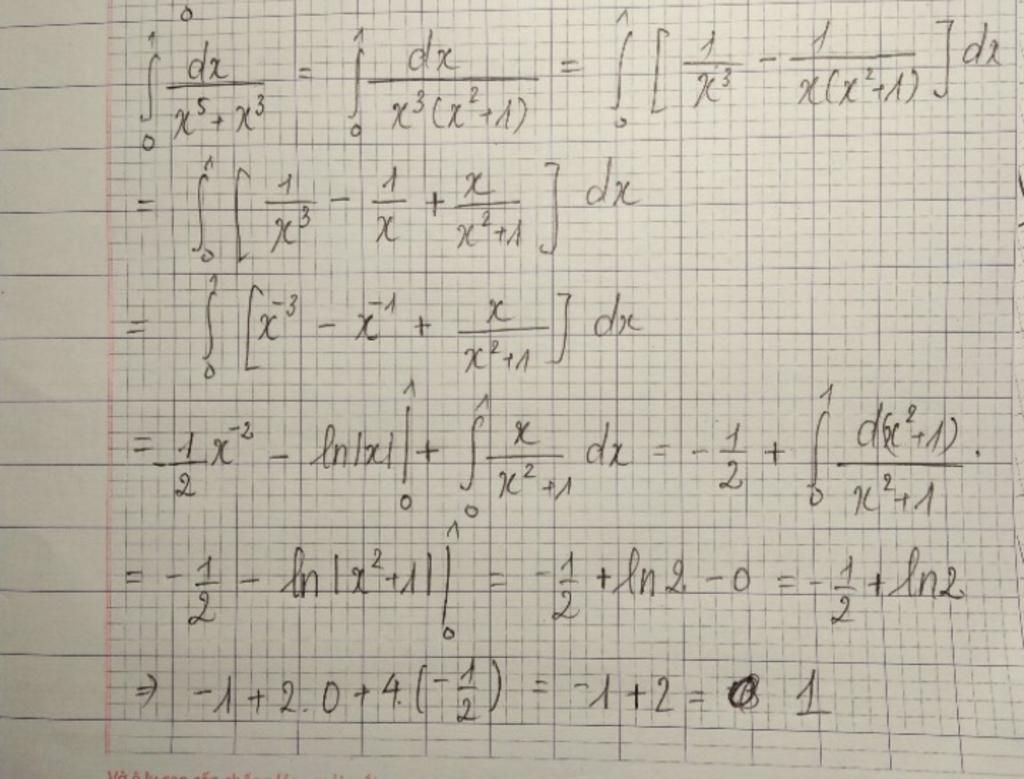 0
∫₀¹ dx/(x⁵ + x³) = ∫₀¹ dx/(x³(x²+1)) = ∫₀¹ [1/x³ − 1/(x(x²+1))] dx
= ∫₀¹ [1/x³ − 1/x + x/(x²+1)] dx
= ∫₀¹ [x⁻³ − x⁻¹ + x/(x²+1)] dx
= −1/2 x⁻² − ln|x| |₀¹ + ∫₀¹ x/(x²+1) dx = −1/2 + ∫₀¹ d(x²+1)/(x²+1).
= −1/2 − ln|x²+1| |₀¹ = −1/2 + ln2 − 0 = −1/2 + ln2
⇒ −1 + 2.0 + 4.(−1/2) = −1 + 2 = 1